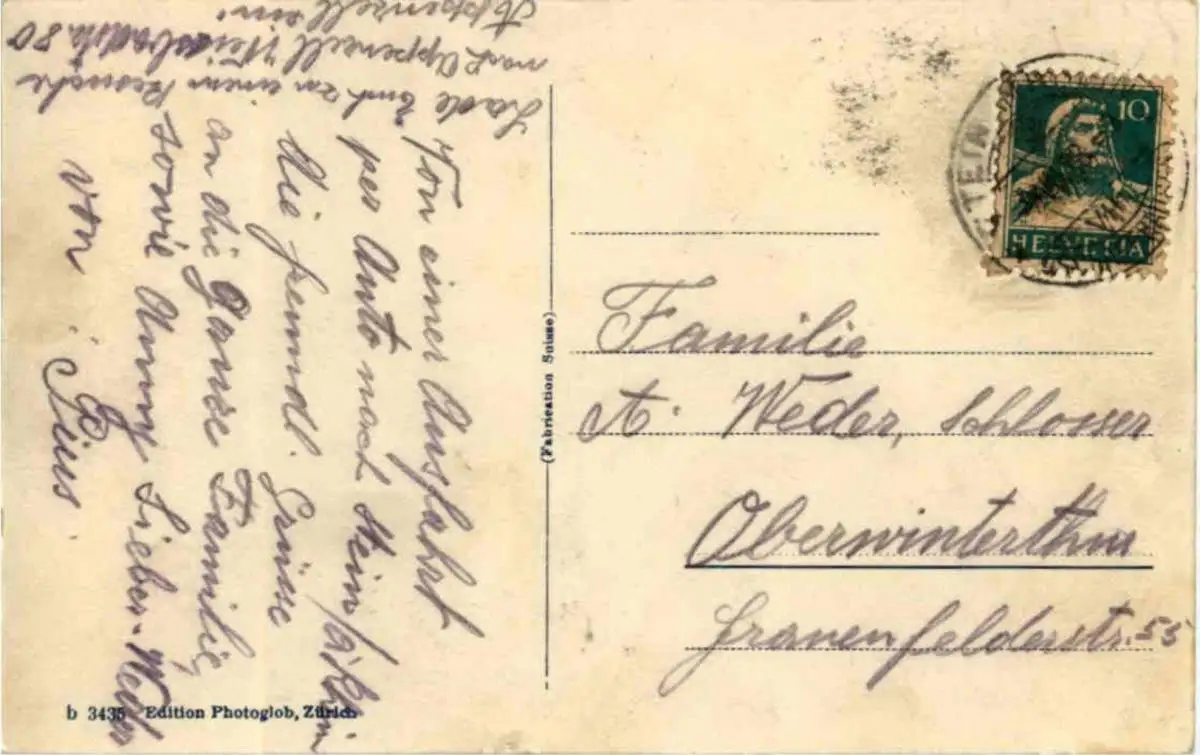 Von einer Ausfahrt
per Auto nach Stein a/Rhein
die freundl. Grüsse
an die ganze Familie,
sowie Anny Lieber-Weder
von Pius.
Lade Euch zu einem Besuche
nach Appenzell 80
Appenzell ein!
(Fabrication Suisse)
b 3435 Edition Photoglob, Zürich
10
HELVETIA
STEIN
Familie
A. Weder, Schlosser
Oberwinterthur
Frauenfelderstr. 55